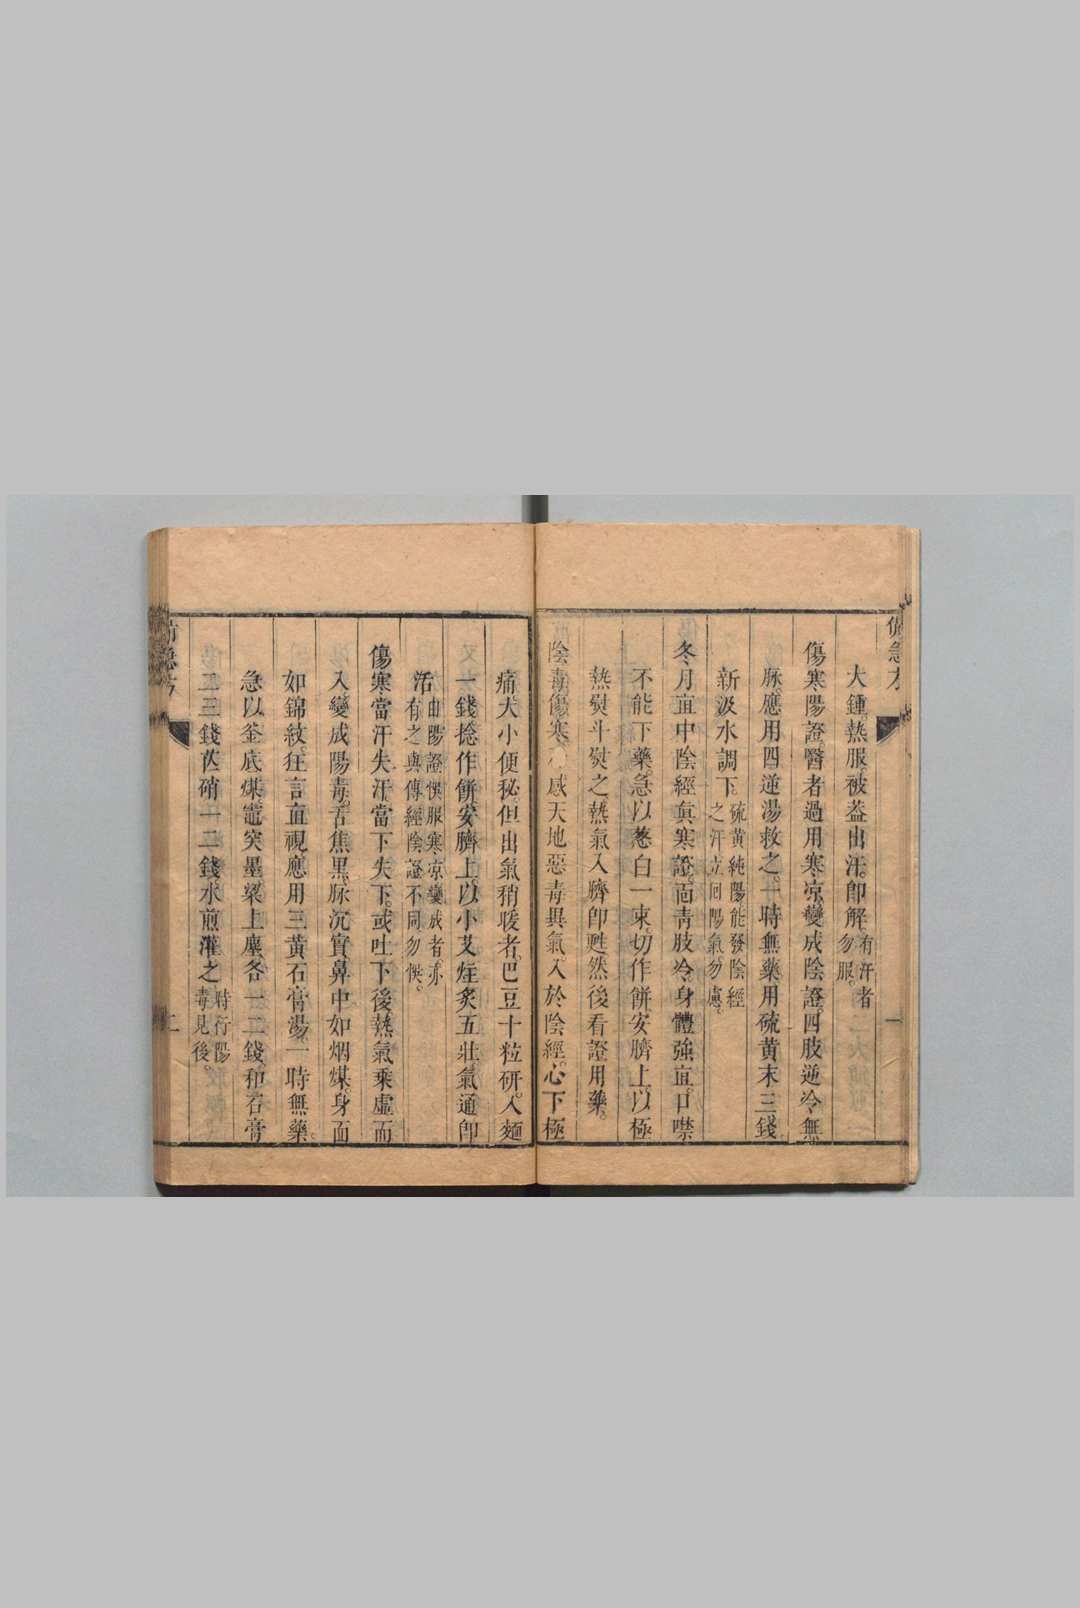 備急方
一
大鍾熱服。被葢出汗。卽解。有汗者勿服。
傷寒陽證醫者過用寒凉。變成陰證。四肢逆冷無
脉。應用四逆湯救之。一時無藥用硫黄末三錢。
新汲水調下。硫黄純陽能發陰經之汗立回陽氣。勿慮。
冬月直中陰經眞寒證。面靑肢冷。身體強直。口噤
不能下藥。急以葱白一束。切作餅。安臍上以極
熱熨斗熨之。熱氣入臍卽甦然後看證用藥。
陰毒傷寒。感天地惡毒異氣。入於陰經。心下極
痛大小便秘。但出氣稍暖者。巴豆十粒研。入麵
一錢捻作餅。安臍上。以小艾炷炙五壯氣通卽
活。有由陽證悞服寒凉變成者。亦有之與傳經陰證不同勿悞。
傷寒當汗失汗。當下失下。或吐下後熱氣乘虛而
入變成陽毒。舌焦黑。脉沉實鼻中如烟煤。身面
如錦紋。狂言直視應用三黄石膏湯。一時無藥。
急以釜底煤。竈突墨梁上塵各一二錢和石膏
二三錢芒硝一二錢水煎灌之。時行陽毒見後。
備急方
二